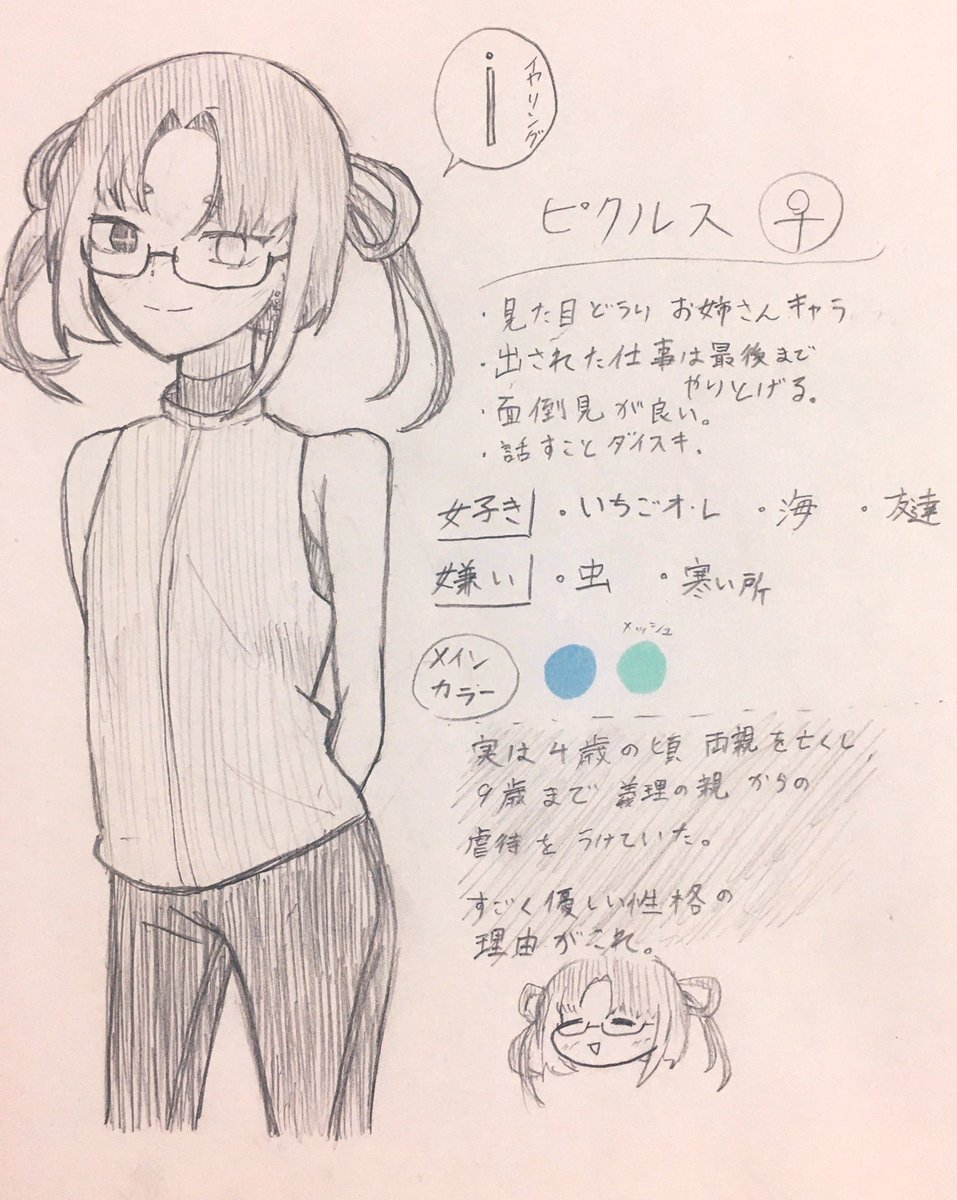 i
イヤリング
ピクルス ♀
・見た目どうり お姉さんキャラ
・出された仕事は最後まで
やりとげる。
・面倒見が良い。
・話すことダイスキ.
好き ・いちごオ・レ ・海 ・友達
嫌い ・虫 ・寒い所
メイン
カラー
メッシュ
実は4歳の頃 両親を亡くし,
9歳まで 義理の親からの
虐待をうけていた。
すごく優しい性格の
理由がこれ。